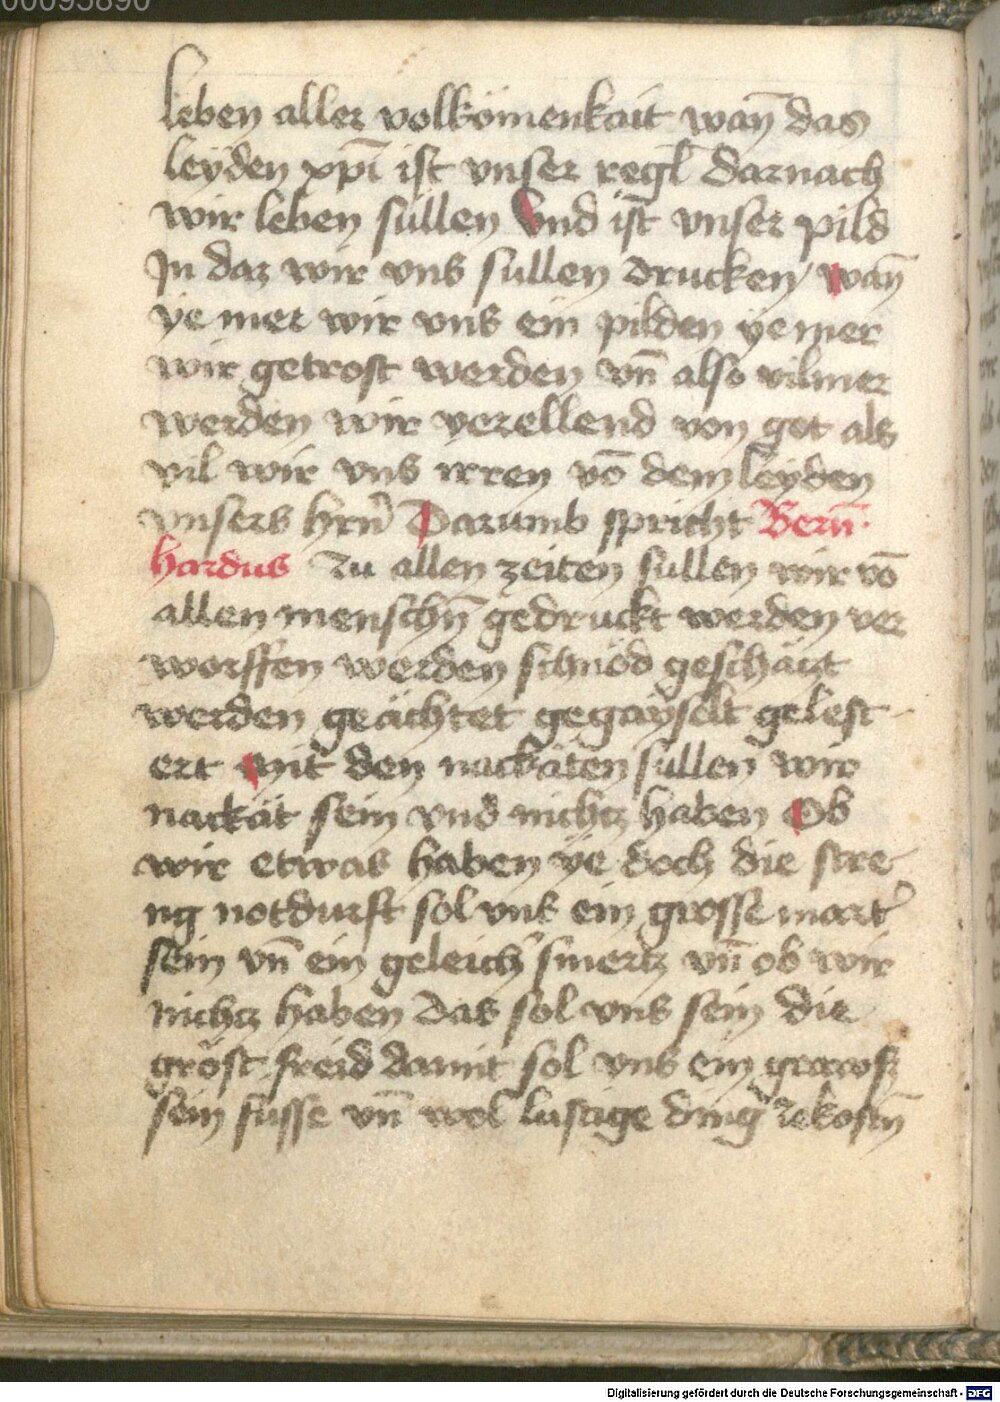 00095890
leben aller volkömenkait wan̄ das
leyden xp̄i ist vnser regl̄ darnach
wir leben sullen Vnd ist vnser pild
In daz wir vns sullen drucken / wan̄
ye mer wir vns ein pilden ye mer
wir getrost werden vn̄ also vilmer
werden wir verellend von got als
vil wir vns irren vō dem leyden
vnsers hrn̄ Darumb spricht Bern̄
hardus Zu allen zeiten sullen wir vō
allen menschn̄ gedruckt werden ver
worffen werden schnöd geschäczt
werden geächtet gegayselt gelest
ert mit den nackäten sullen wir
nackät sein vnd nichcz haben Ob
wir etwas haben ye doch die stre
ng notdurft sol vns ein grosse mart̾
sein vn̄ ein geleich̾ smertz vn̄ ob wir
nichcz haben das sol vns sein die
gröst freid damit sol vns ein grawß
sein susse vn̄ wol lustige ding zekostn̄
Digitalisierung gefördert durch die Deutsche Forschungsgemeinschaft - DFG